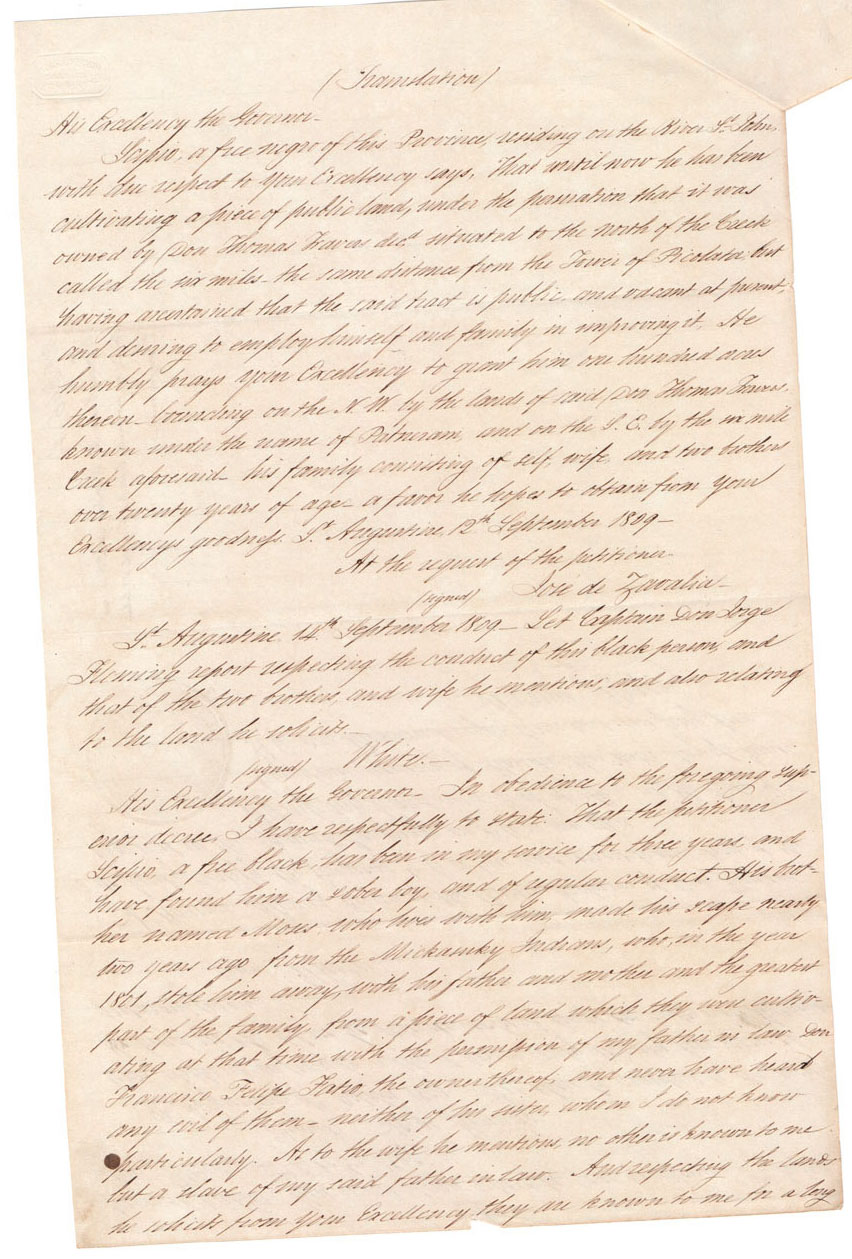 (Translation)
His Excellency the Governor-
Scipio, a free negro of this Province, residing on the River St. John,
with due respect to your Excellency says, That until now he has been
cultivating a piece of public land, under the permation that it was
owned by Don Thomas Travas decd. situated to the north of the Creek
called the six miles- the same distance from the Tower of Picolata; but
having ascertained that the said tract is public, and vacant at present,
and desiring to employ himself and family in improving it, He
humbly prays your Excellency to grant him one hundred acres
thereon- bounding on the N.W. by the lands of said Don Thomas Travas,
known under the name of and on the S. E. by the six mile
Creek aforesaid- his family consisting of self, wife, and two brothers
over twenty years of age- a favor he hopes to obtain from your
Excellencys goodness. St. Augustine, 12th September 1809-
At the request of the petitioner-
(signed) José de Zavalia-
St. Augustine 14th September 1809- Let Captain Don Jorge
Fleming report respecting the conduct of this black person, and
that of the two brothers, and wife he mentions, and also relating
to the land he solicits.-
(signed) White.-
His Excellency the Governor- In obedience to the foregoing sup-
erior decree, I have respectfully to state: That the petitioner
Scipio, a free black, has been in my service for three years, and
have found him a sober boy, and of regular conduct. His bro-
ther named Mous, who lives with him, made his scape nearly
two years ago from the Mickasuky Indians, who, in the year
1801, stole him away, with his father and mother and the greatest
part of the family, from a piece of land which they were cultiv-
ating at that time with the permission of my father in law Don
Francisco Felipe Fatio, the owner thereof, and never have heard
any evil of them- neither of his sister, whom I do not know
particularly. As to the wife he mentions, no other is known to me
but a slave of my said father in law. And respecting the lands
he solicits from your Excellency, they are known to me for a long